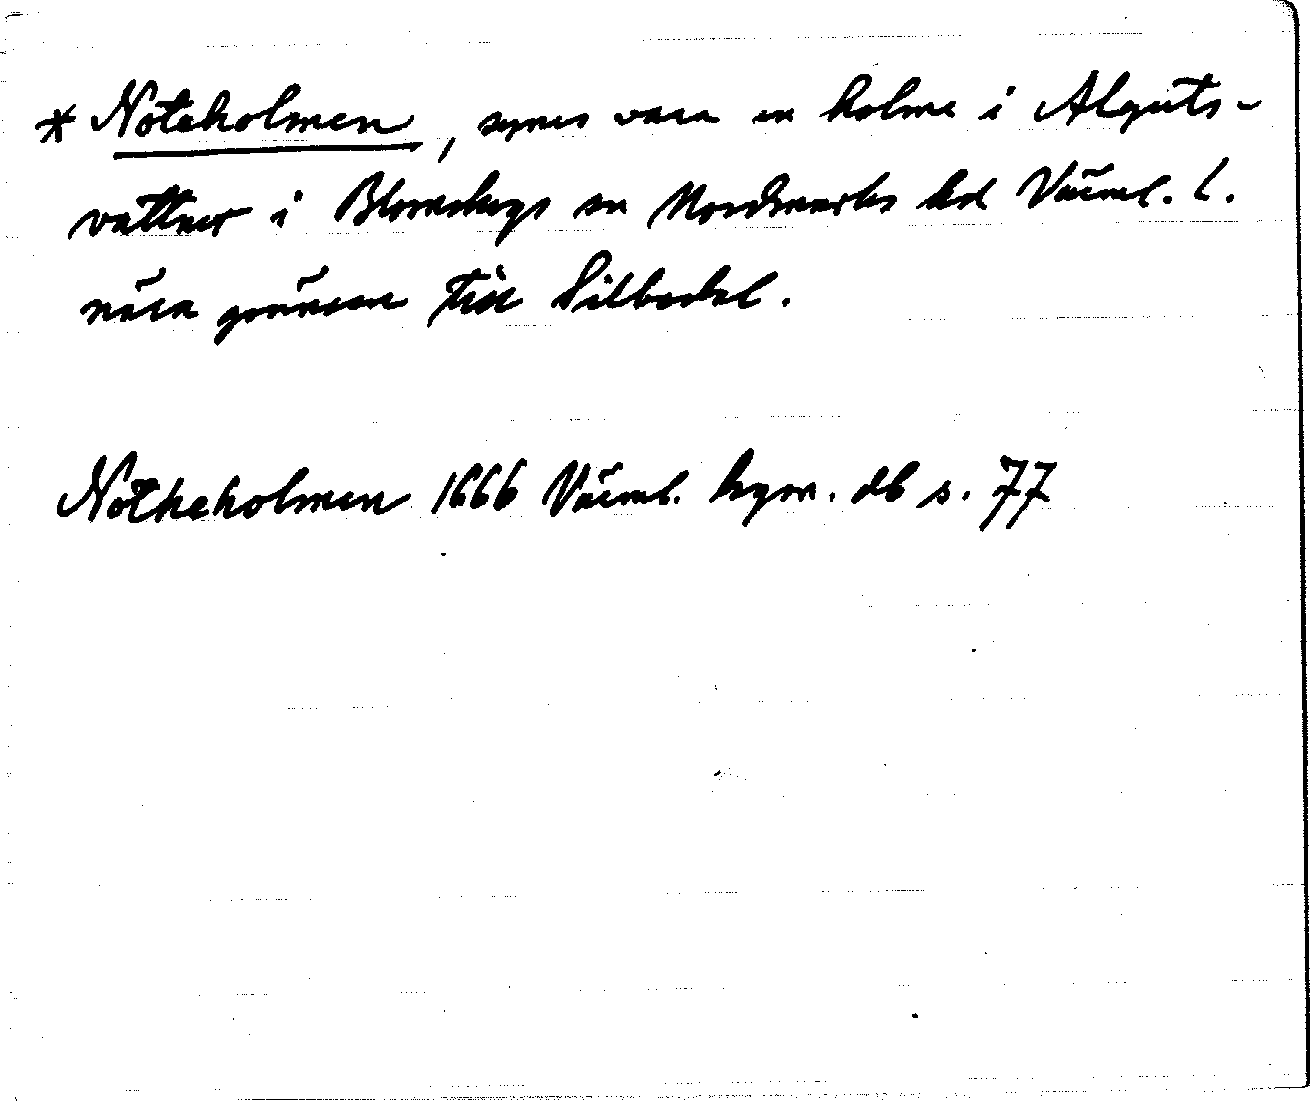 * Noteholmen, synes vara en holme i Alguts-
vattnet i Blomskogs sn Nordmarks hd Värml. l.
nära gränsen till Silbodal.
Notheholmen 1666 Värml. hgsr. db s. 77